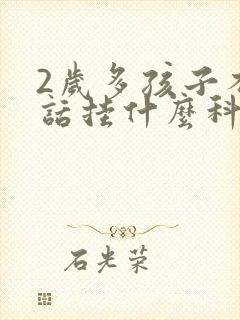 2歲多孩子
話挂什麼科
石光荣